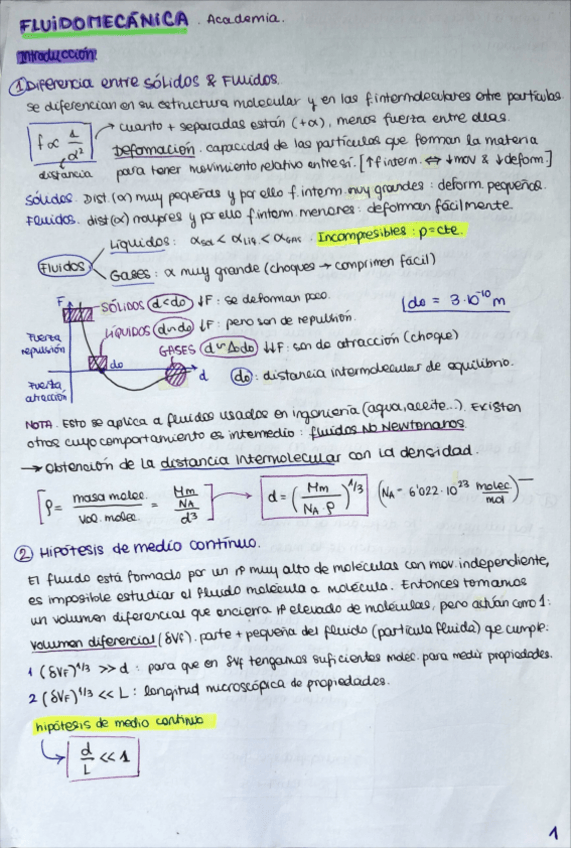 FLUIDOMECÁNICA. Academia.
Introducción
① Diferencia entre SÓLIDOS & Fluidos.
Se diferencian en su estructura molecular y en las f.intermoleculares entre partículas
f ∝ 1/α² → cuanto + separadas están (+α), menos fuerza entre ellas.
distancia
Deformación. capacidad de las partículas que forman la materia
para tener movimiento relativo entre sí. [↑f interm. ⇔ ↓mov & ↓deform.]
Sólidos. Dist. (α) muy pequeñas y por ello f. interm. muy grandes: deform. pequeñas.
Fluidos. dist (α) mayores y por ello f.interm. menores: deforman fácilmente.
Fluidos
Líquidos: αsol < αLíq. < αGAS. Incompresibles: ρ=cte.
Gases: α muy grande (choques → comprimen fácil)
F
SÓLIDOS d<do ↓F: se deforman poco.
do = 3·10⁻¹⁰ m
Fuerza repulsión
LÍQUIDOS d∼do ↓F: pero son de repulsión.
do
GASES d∼10do ↓↓F: son de atracción (choque)
d
Fuerza atracción
do: distancia intermolecular de equilibrio.
NOTA. Esto se aplica a fluidos usados en ingeniería (agua, aceite...). Existen
otros cuyo comportamiento es intermedio: fluidos No Newtonianos.
→ Obtención de la distancia intermolecular con la densidad.
[ρ = masa molec. / vol. molec = (Mm/NA) / d³] → d = (Mm / NA·ρ)^1/3 (NA = 6'022·10²³ molec/mol)
② HIPÓTESIS de medio continuo.
El fluido está formado por un nº muy alto de moléculas con mov. independiente,
es imposible estudiar el fluido molécula a molécula. Entonces tomamos
un volumen diferencial que encierra nº elevado de moléculas, pero actúan como 1:
Volumen diferencial (δVF). parte + pequeña del fluido (partícula fluida) que cumple:
1 (δVF)^1/3 >> d: para que en δVF tengamos suficientes molec. para medir propiedades.
2 (δVF)^1/3 << L: longitud microscópica de propiedades.
hipótesis de medio continuo
d/L << 1
1